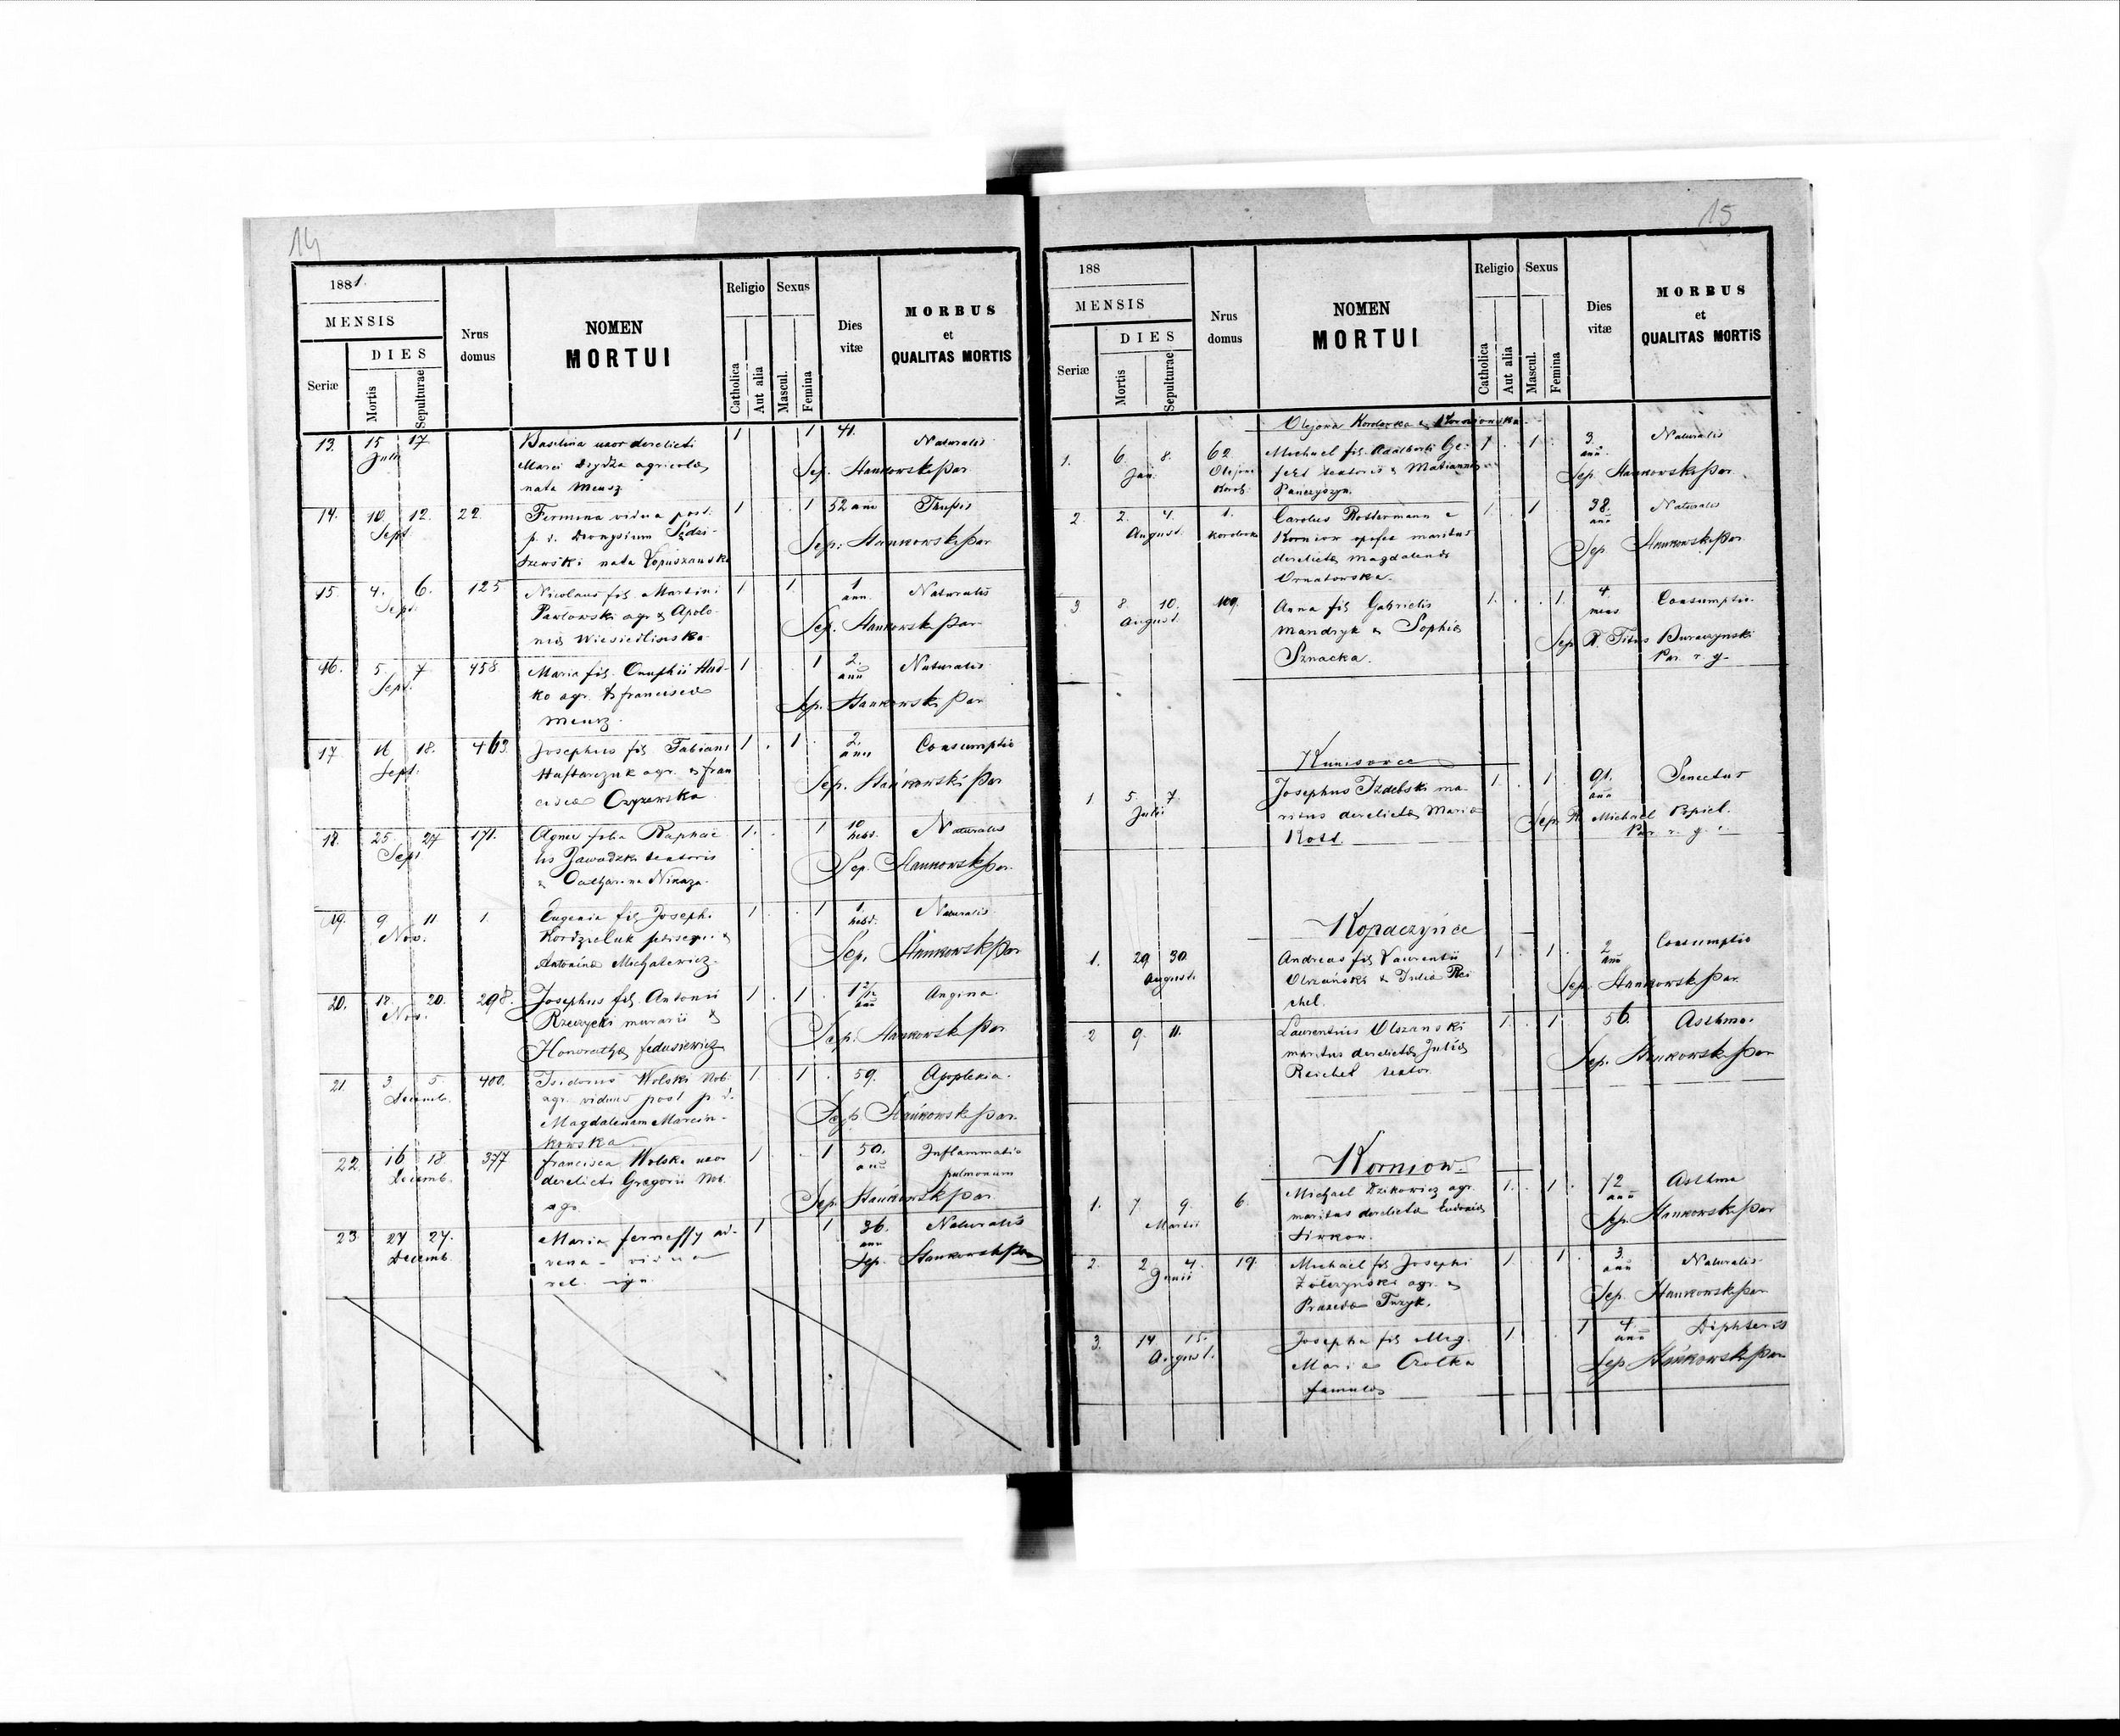 14
1881.
MENSIS
DIES
Seriæ
Mortis
Sepulturae
Nrus
domus
NOMEN
MORTUI
Religio
Catholica
Aut alia
Sexus
Mascul.
Femina
Dies
vitæ
MORBUS
et
QUALITAS MORTIS
13. 15 17 Basilina uxor derelicti 1 1 41. Naturalis
Julii Marci Dzydza agricolae Sep. Hankowski par
nata Mensz
14. 10 12. 22. Fermina vidua post. 1 1 52 ann
Sept p. d. Dionysium Sep: Hankowski par
nata Łopuszanska
15. 4. 6. 125 Nicolaus fil. Martini 1 1 1 Naturalis
Sept. Pawłowski agr & Apolo- ann. Sep. Hankowski par
nia
16. 5 7 458 Maria fil. Onuphrii Hud- 1 1 2. Naturalis
Sept. ko agr. & franciscae ann Sep. Hankowski par
Mensz.
17. 16 18. 463. Josephus fil Fabiani 1 1 2. Consumptio
Sept. Haftarczuk agr. & fran ann Sep. Hankowski par
cisca Czyzewska
18. 25 27 171. Agnes filia Raphae 1. 1 10 Naturalis
Sept lis Zawadzki textoris hebd. Sep. Hankowski par.
& Catharina
19. 9 11 1. Eugenia fil Josephi 1 1 1 Naturalis
Nov. Kordzieluk & hebd. Sep. Hankowski par
Antonina Michalewicz
20. 18. 20. 298. Josephus fil. Antonii 1 1 Angina.
Nov. Rzeczycki murarii & ann Sep. Hankowski par
Honoratha fedusiewicz
21. 3 5. 400. Isidorus Wolski Nob. 1. 1 59. Apoplexia.
Decemb. agr. viduus post p. d. Sep Hankowski par.
Magdalenam Marcin-
kowska
22. 16 18. 377 francisca Wolska uxor 1 1 50. Inflammatio
Decemb. derelicti Gregorii Nob. ann pulmonum
agr. Sep. Hankowski par
23. 27 27. Maria ad- 1 1 36. Naturalis
Decemb. vena - vidua ann Sep. Hankowski par
rel. ign.
15
188
MENSIS
DIES
Seriæ
Mortis
Sepulturae
Nrus
domus
NOMEN
MORTUI
Religio
Catholica
Aut alia
Sexus
Mascul.
Femina
Dies
vitæ
MORBUS
et
QUALITAS MORTIS
Olejowa Korolowka &
1. 6. 8. 62. Michael fil. Adalberti 1 1 3. Naturalis
Jan. textoris & Marianna ann. Sep. Hankowski par.
Panczyszyn.
2. 2. 4. 1. Carolus Rostermann e 1 1 38. Naturalis
August. Korolowka Korniow opifex maritus ann Sep. Hankowski par
derelicta Magdalena
Ornatowska.
3 8. 10. 109. Anna fil Gabrielis 1. 1. 4. Consumptio.
August. Mandryk & Sophia mens Sep R. Titus Buraczynski
Sznacka. Par. r. g.
Kunisowce
1. 5. 7. Josephus Izdebski ma- 1. 1. 91. Senectus
Julii ritus derelicta Maria ann Sep. R. Michael
Kost. Par. r. g.
Kopaczyńce
1. 29 30. Andreas fil Laurentii 1 1. 2 Consumptio
Augusti. Olszański & Julia Rei ann Sep. Hankowski par.
chel.
2 9. 11. Laurentius Olszanski 1. 1 56. Asthma.
maritus derelicta Julia Sep. Hankowski par
Reichel textor.
Korniow.
1. 7 9. 6. Michael Dzikowicz agr. 1. 1. 72 Asthma
Martii maritus derelicta Ludovica ann Sep. Hankowski par
2. 2 4. 19. Michael fil Josephi 1. 1 3. Naturalis
Junii Zołczynski agr. & ann Sep. Hankowski par.
Praxeda Tuzyk.
3. 14 15. Josepha fil illeg. 1 1 4. Diphteris
August. Maria Czolka ann Sep Hankowski par
famula